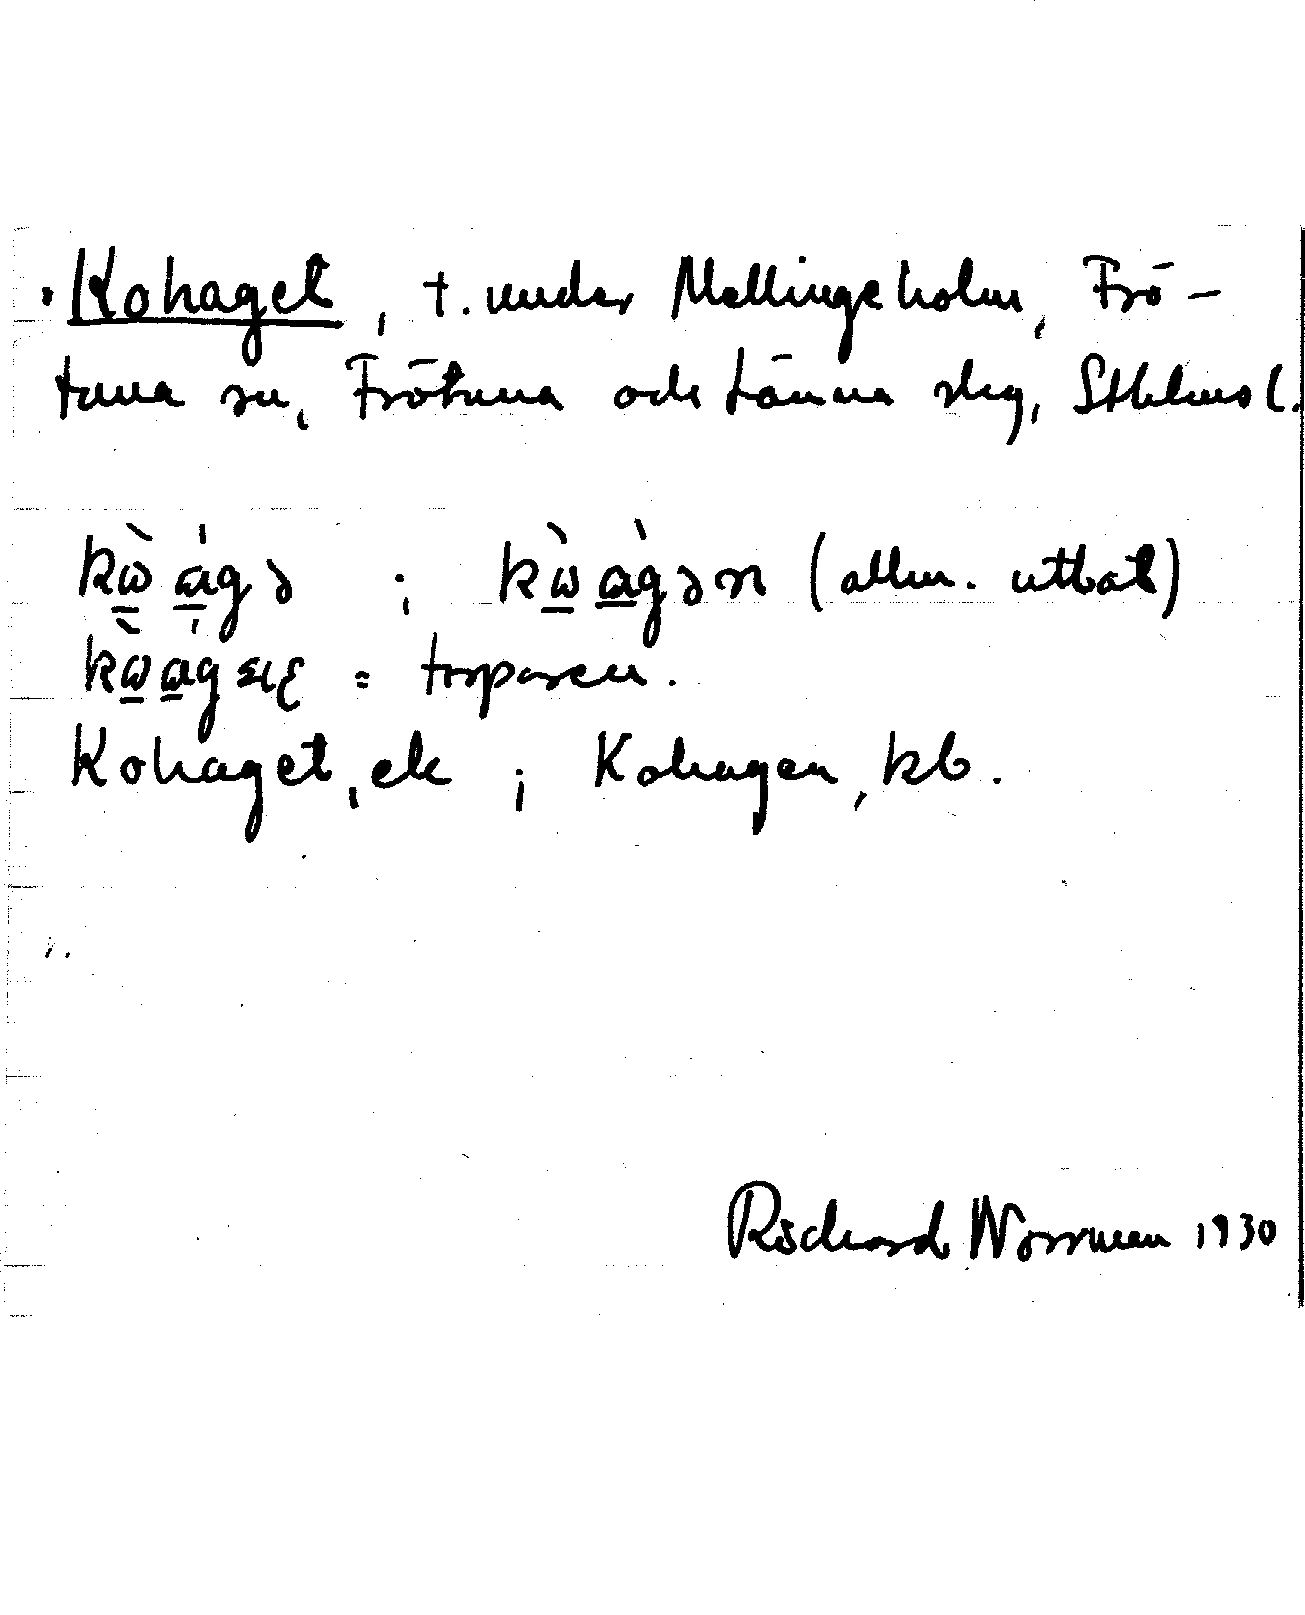 Kohaget, t. under Mellingeholm, Frö-
tuna sn, Frötuna och Länna slg, Sthlms l.
kὼ ɑ̀gə ; kὼɑ̀gən (allm. uttal)
= torparen.
Kohaget, ek ; Kohagen, kb.
Richard Norrman 1930